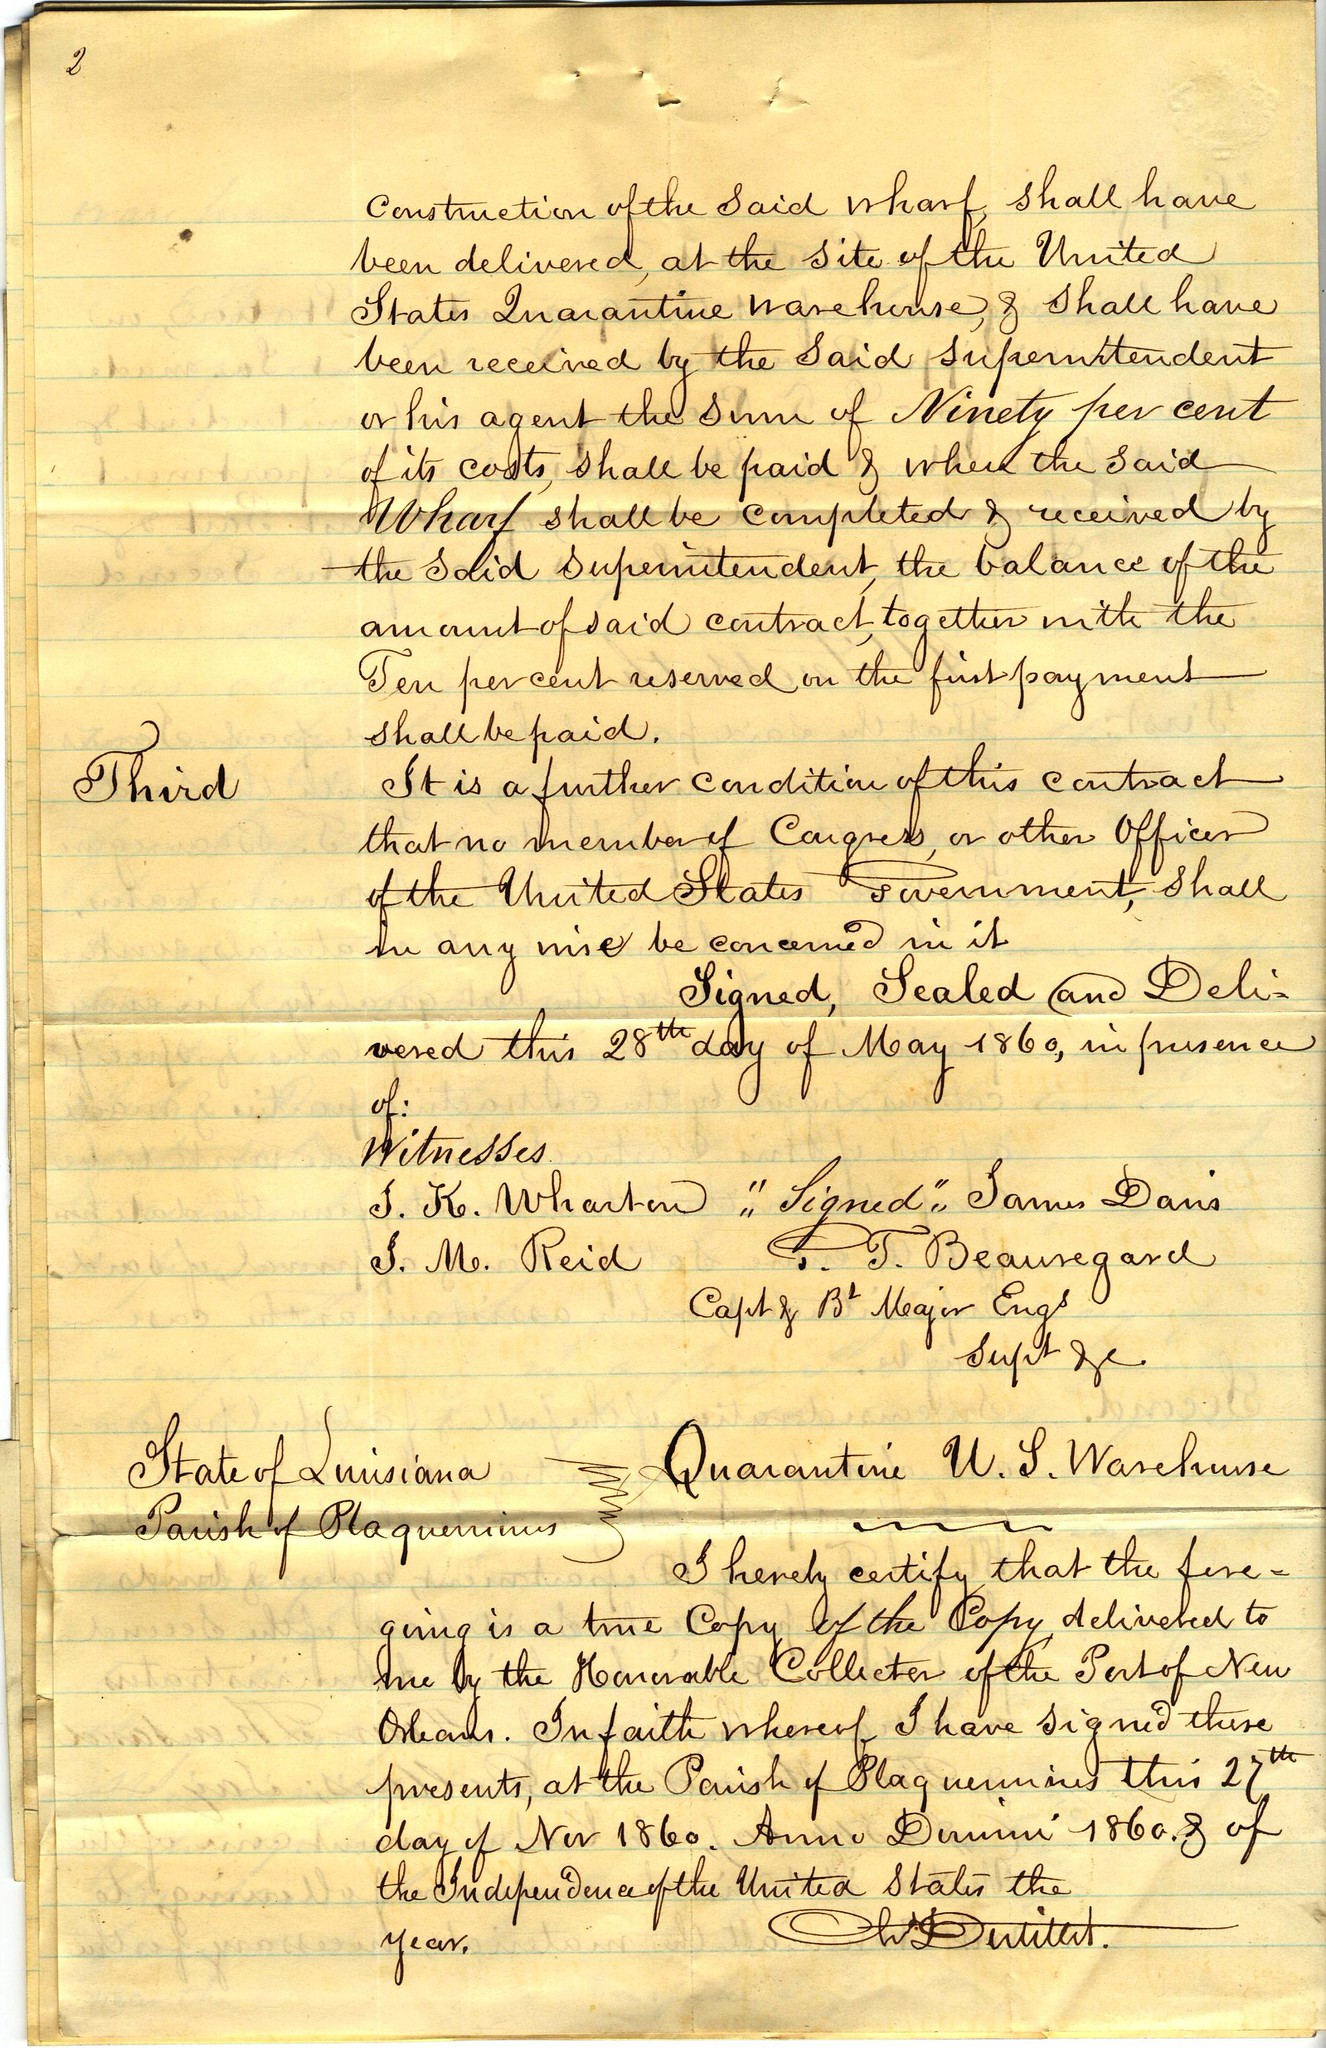 2
Construction of the Said Wharf, shall have
been delivered, at the site of the United
States Quarantine Warehouse, & shall have
been received by the Said Superintendent
or his agent the sum of Ninety per cent
of its costs, shall be paid & when the said
Wharf shall be completed & received by
the Said Superintendent, the balance of the
amount of said contract, together with the
Ten per cent reserved on the first payment
shall be paid.
Third It is a further condition of this contract
that no member of Congress, or other Officer
of the United States Government, shall
in any wise be concerned in it
Signed, Sealed and Deli-
vered this 28th day of May 1860, in presence
of:
Witnesses
T. K. Wharton "Signed" James Davis
J. M. Reid T. Beauregard
Capt & Bt Major Engs
Supt &c
State of Louisiana Quarantine U. S. Warehouse
Parish of Plaquemines
I hereby certify that the fore-
going is a true Copy of the Copy delivered to
me by the Honorable Collector of the Port of New
Orleans. In faith whereof, I have signed these
presents, at the Parish of Plaquemines this 27th
day of Nov 1860. Anno Domini 1860. & of
the Independence of the United States the
year.